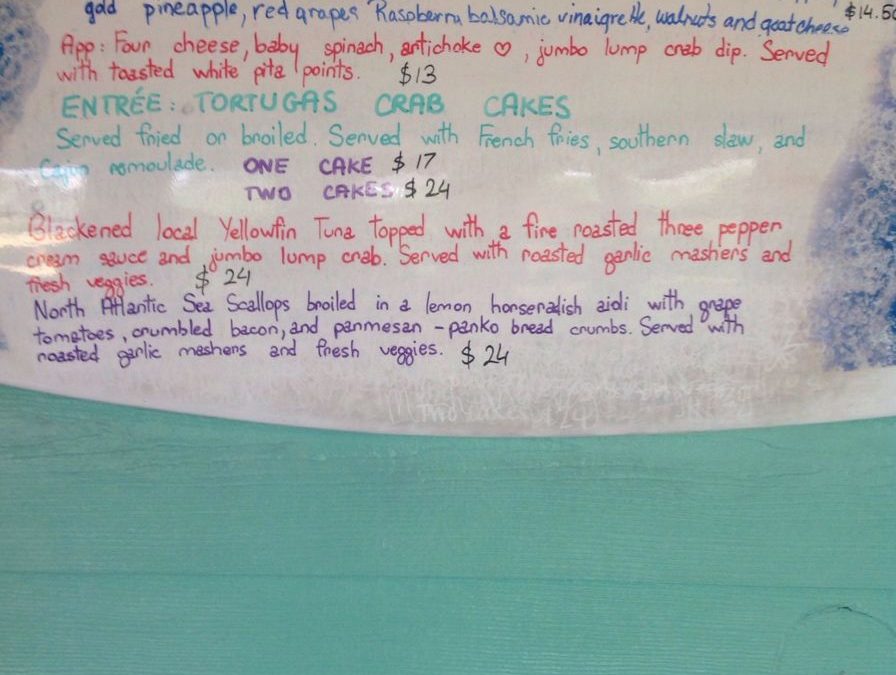 gold pineapple, red grapes Raspberry balsamic vinaigrette, walnuts and goat cheese $14.50
App: Four cheese, baby spinach, artichoke ♡, jumbo lump crab dip. Served
with toasted white pita points. $13
ENTRÉE: TORTUGAS CRAB CAKES
Served fried or broiled. Served with French fries, southern slaw, and
Cajun remoulade. ONE CAKE $17
TWO CAKES $24
Blackened local Yellowfin Tuna topped with a fire roasted three pepper
cream sauce and jumbo lump crab. Served with roasted garlic mashers and
fresh veggies. $24
North Atlantic Sea Scallops broiled in a lemon horseradish aidi with grape
tomatoes, crumbled bacon, and parmesan - panko bread crumbs. Served with
roasted garlic mashers and fresh veggies. $24